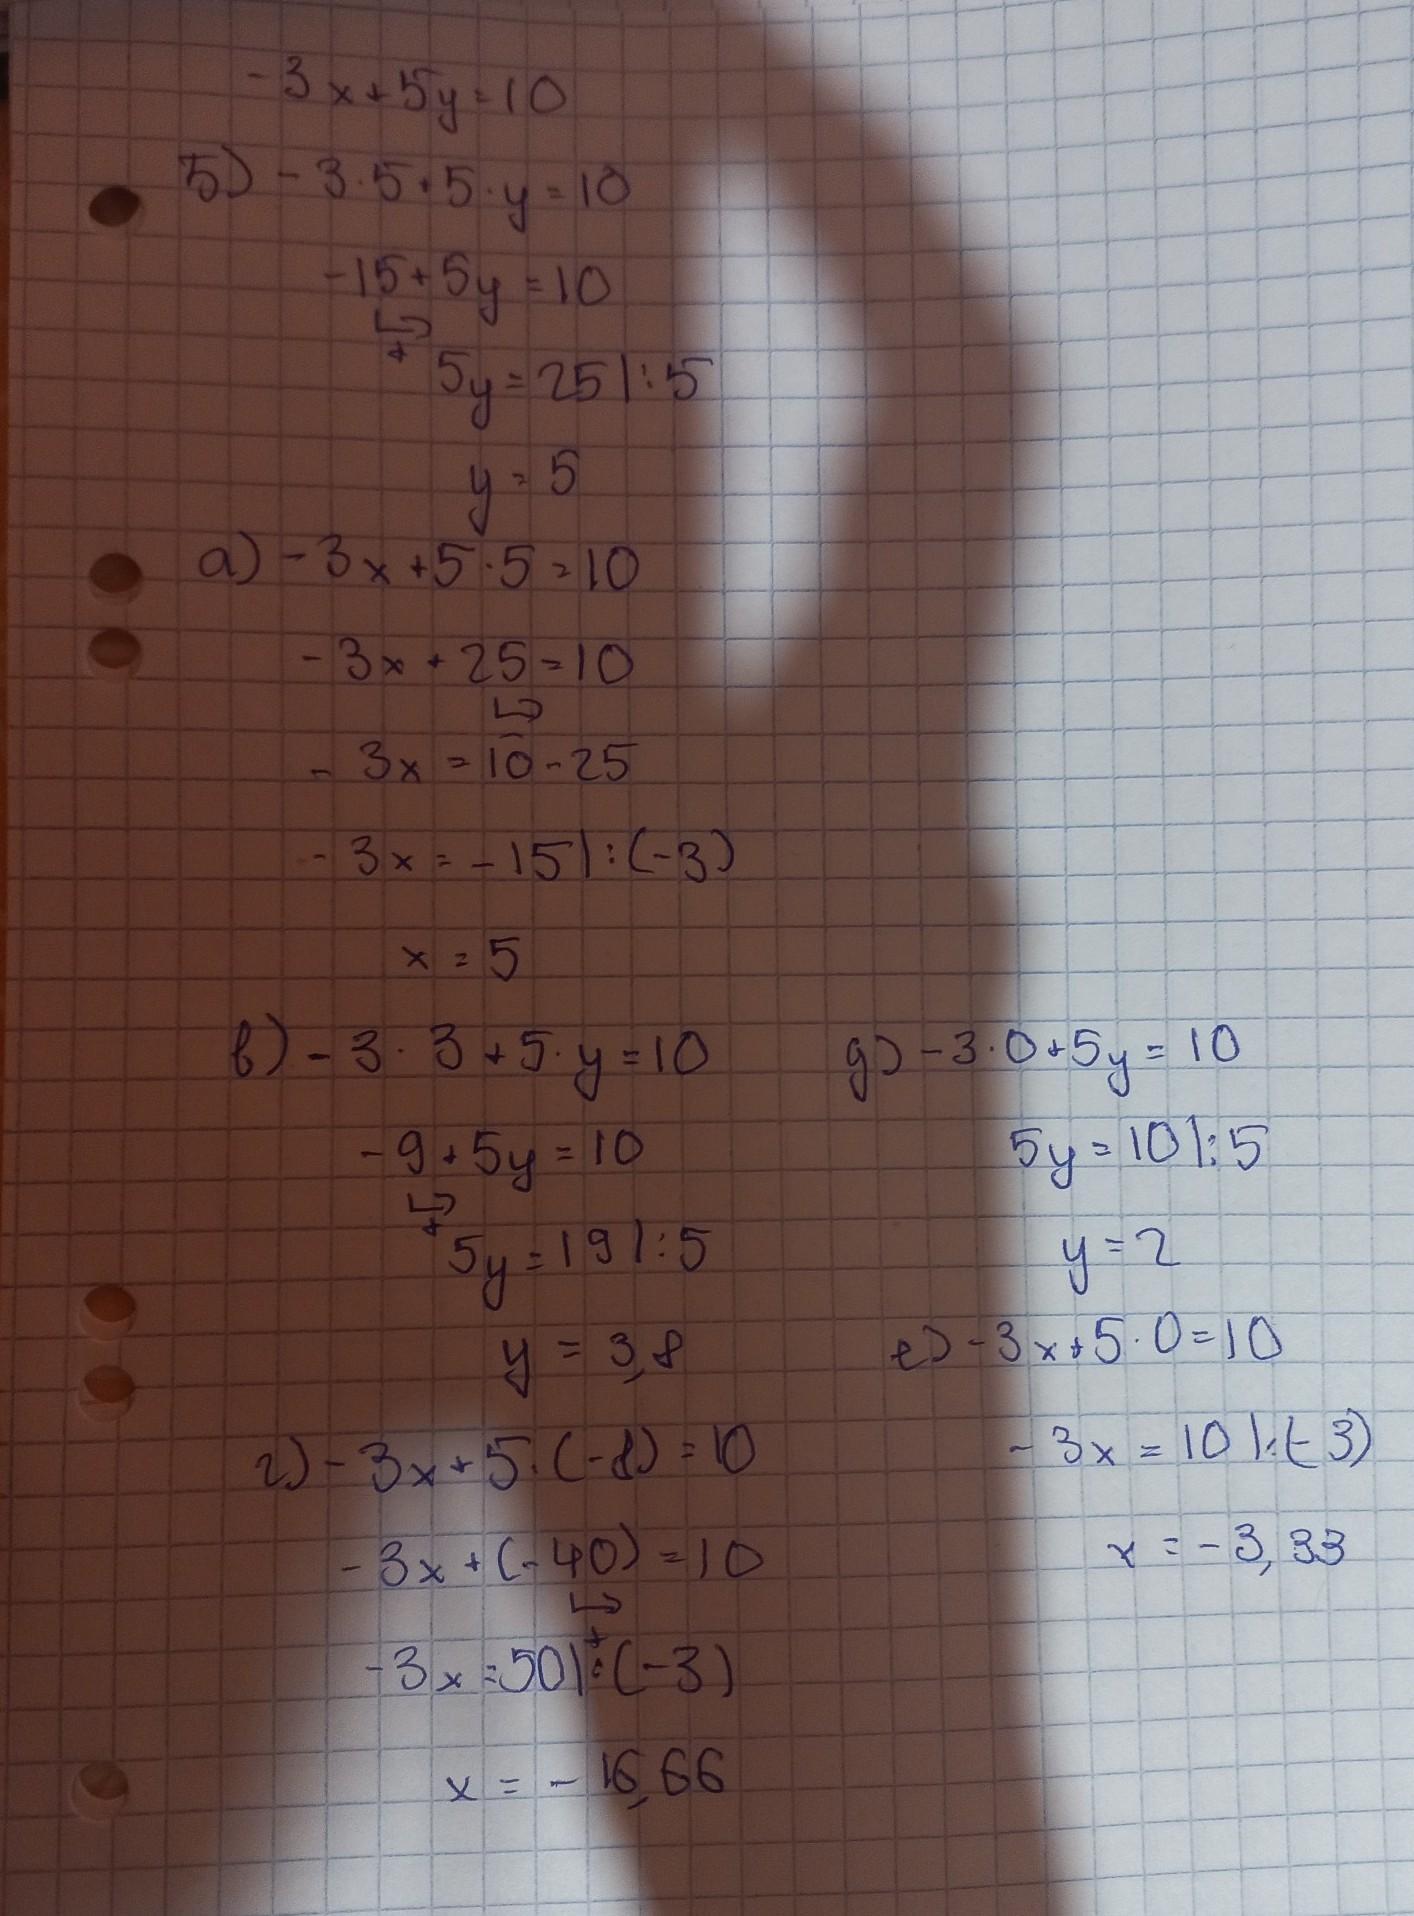 -3x+5y=10
б) -3·5+5·y=10
-15+5y=10
+
5y=25|:5
y=5
а) -3x+5·5=10
-3x+25=10
-
-3x=10-25
-3x=-15|:(-3)
x=5
в) -3·3+5·y=10
-9+5y=10
+
5y=19|:5
y=3,8
г) -3x+5·(-8)=10
-3x+(-40)=10
+
-3x=50|:(-3)
x=-16,66
д) -3·0+5y=10
5y=10|:5
y=2
е) -3x+5·0=10
-3x=10|:(-3)
x=-3,33